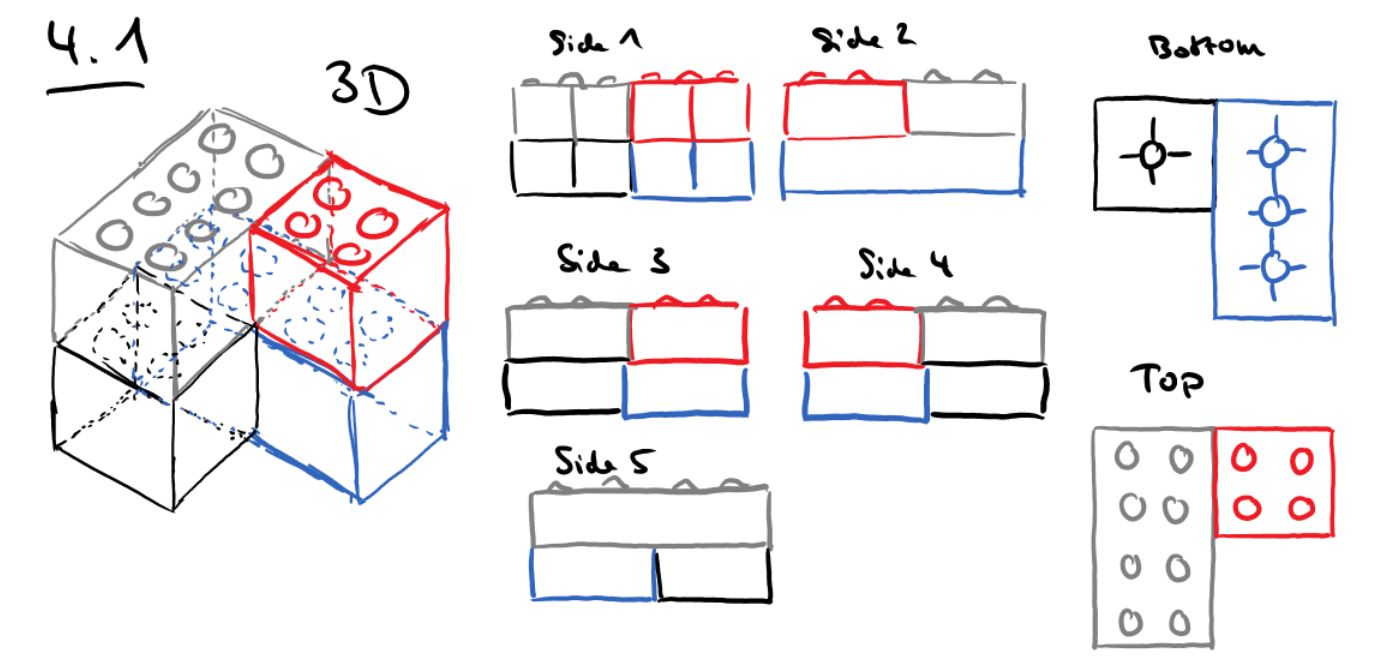 4.1
3D
Side 1
Side 2
Bottom
Side 3
Side 4
Top
Side 5